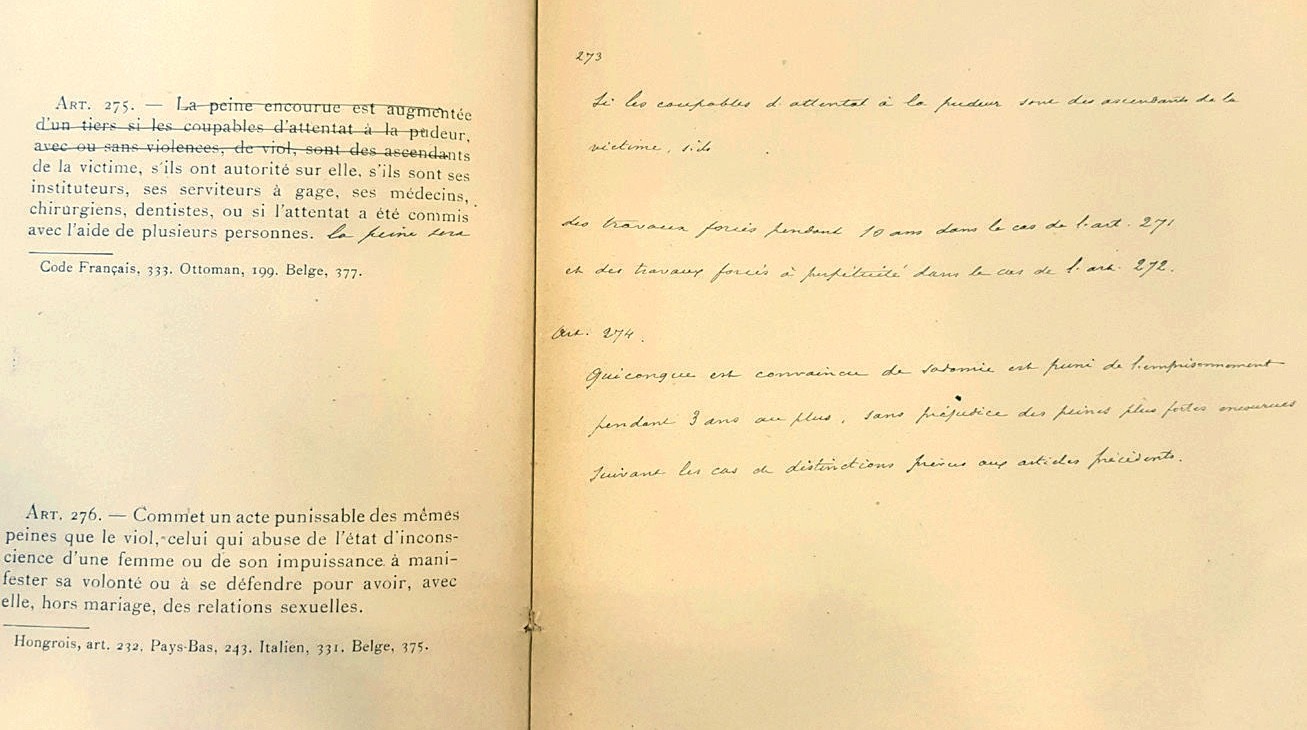 ART. 275. — La peine encourue est augmentée
d'un tiers si les coupables d'attentat à la pudeur,
avec ou sans violences, de viol, sont des ascendants
de la victime, s'ils ont autorité sur elle, s'ils sont ses
instituteurs, ses serviteurs à gage, ses médecins,
chirurgiens, dentistes, ou si l'attentat a été commis
avec l'aide de plusieurs personnes. la peine sera
Code Français, 333. Ottoman, 199. Belge, 377.
ART. 276. — Commet un acte punissable des mêmes
peines que le viol, celui qui abuse de l'état d'incons-
cience d'une femme ou de son impuissance à mani-
fester sa volonté ou à se défendre pour avoir, avec
elle, hors mariage, des relations sexuelles.
Hongrois, art. 232, Pays-Bas, 243. Italien, 331. Belge, 375.
273
Si les coupables d'attentat à la pudeur sont des ascendants de la
victime, s'ils
des travaux forcés pendant 10 ans dans le cas de l'art. 271
et des travaux forcés à perpétuité dans le cas de l'art. 272.
Art. 274.
Quiconque est convaincu de sodomie est puni de l'emprisonnement
pendant 3 ans au plus, sans préjudice des peines plus fortes encourues
suivant les cas de distinctions prévus aux articles précédents.